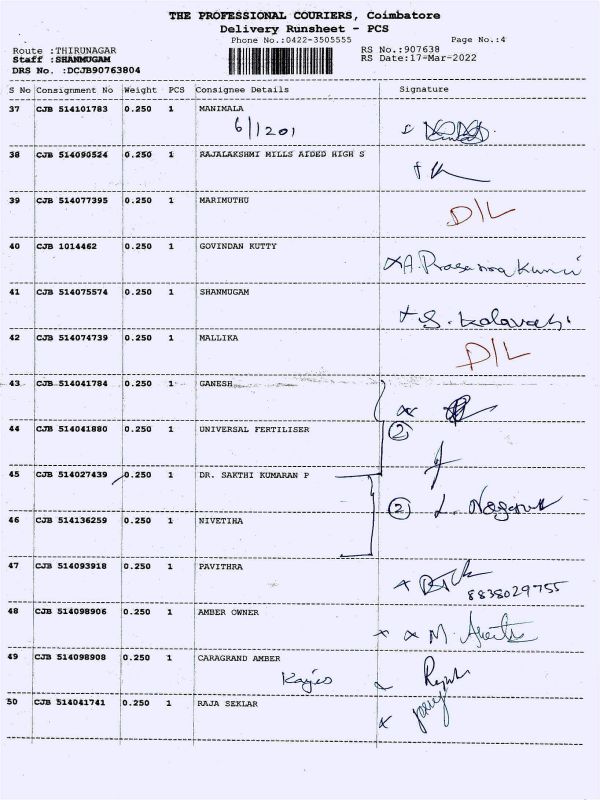 THE PROFESSIONAL COURIERS, Coimbatore
Delivery Runsheet - PCS
Phone No.:0422-3505555 Page No.:4
Route :THIRUNAGAR RS No.:907638
Staff :SHANMUGAM RS Date:17-Mar-2022
DRS No. :DCJB90763804
S No Consignment No Weight PCS Consignee Details Signature
37 CJB 514101783 0.250 1 MANIMALA
6/1201
38 CJB 514090524 0.250 1 RAJALAKSHMI MILLS AIDED HIGH S
39 CJB 514077395 0.250 1 MARIMUTHU
D/L
40 CJB 1014462 0.250 1 GOVINDAN KUTTY
41 CJB 514075574 0.250 1 SHANMUGAM
42 CJB 514074739 0.250 1 MALLIKA
D/L
43 CJB 514041784 0.250 1 GANESH
44 CJB 514041880 0.250 1 UNIVERSAL FERTILISER
2
45 CJB 514027439 0.250 1 DR. SAKTHI KUMARAN P
2
46 CJB 514136259 0.250 1 NIVETIHA
47 CJB 514093918 0.250 1 PAVITHRA
8838029755
48 CJB 514098906 0.250 1 AMBER OWNER
49 CJB 514098908 0.250 1 CARAGRAND AMBER
50 CJB 514041741 0.250 1 RAJA SEKLAR